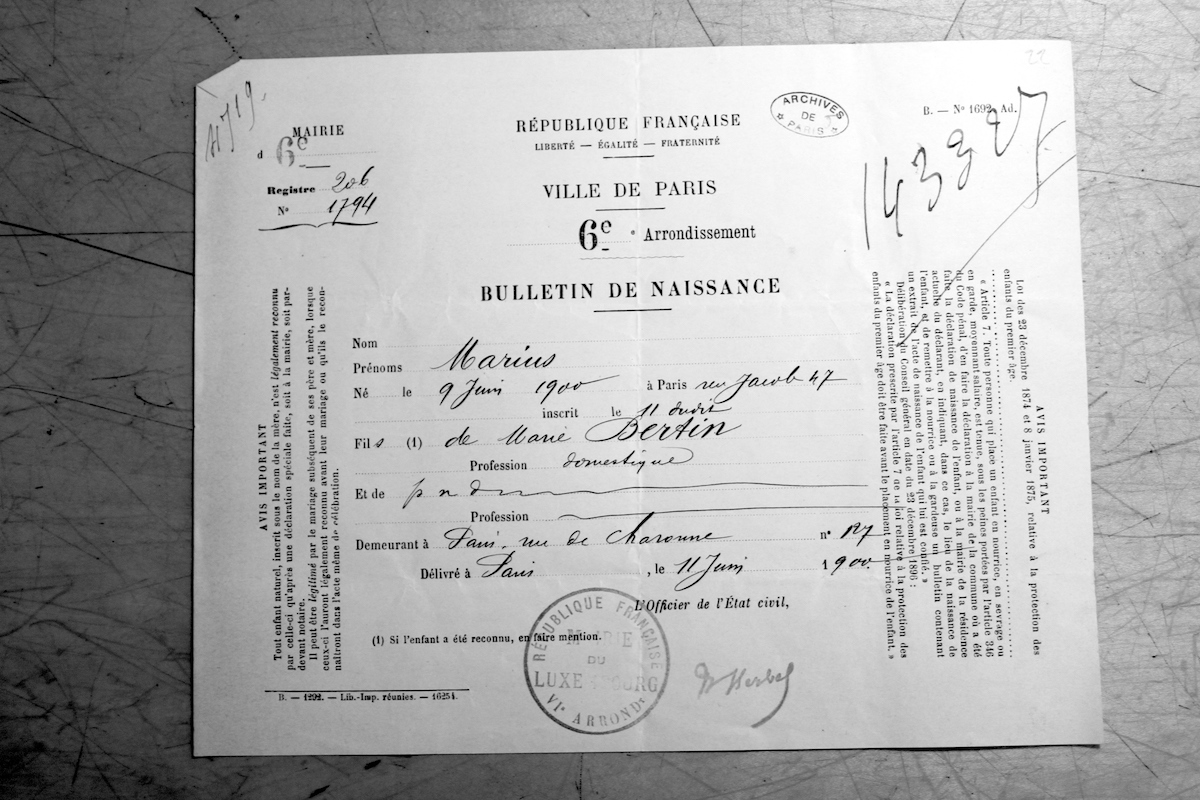 4719.
MAIRIE
d 6e
Registre 206
No 1794
RÉPUBLIQUE FRANÇAISE
LIBERTÉ — ÉGALITÉ — FRATERNITÉ
VILLE DE PARIS
6e Arrondissement
BULLETIN DE NAISSANCE
ARCHIVES
DE
PARIS
22
B. — No 1692. Ad.
Nom
Prénoms Marius
Né le 9 Juin 1900 à Paris rue Jacob 47
inscrit le 11 dudit
Fils (1) de Marie Bertin
Profession domestique
Et de p n d
Profession
Demeurant à Paris, rue de Charonne no 127
Délivré à Paris, le 11 Juin 1900.
L'Officier de l'État civil,
(1) Si l'enfant a été reconnu, en faire mention.
RÉPUBLIQUE FRANÇAISE
MAIRIE
DU
LUXEMBOURG
VIe ARRONDt
B. — 1292. — Lib.-Imp. réunies. — 16254.
AVIS IMPORTANT
Tout enfant naturel, inscrit sous le nom de la mère, n'est légalement reconnu
par celle-ci qu'après une déclaration spéciale faite, soit à la mairie, soit par-
devant notaire.
Il peut être légitimé par le mariage subséquent de ses père et mère, lorsque
ceux-ci l'auront légalement reconnu avant leur mariage ou qu'ils le recon-
naîtront dans l'acte même de célébration.
AVIS IMPORTANT
Loi des 23 décembre 1874 et 8 janvier 1875, relative à la protection des
enfants du premier âge.
« Article 7. Toute personne qui place un enfant en nourrice, en sevrage ou
en garde, moyennant salaire, est tenue, sous les peines portées par l'article 346
du Code pénal, d'en faire la déclaration à la mairie de la commune où a été
faite la déclaration de naissance de l'enfant, ou à la mairie de la résidence
actuelle du déclarant, en indiquant, dans ce cas, le lieu de la naissance de
l'enfant, et de remettre à la nourrice ou à la gardeuse un bulletin contenant
un extrait de l'acte de naissance de l'enfant qui lui est confié. »
Délibération du Conseil général en date du 23 décembre 1896 :
« La déclaration prescrite par l'article 7 de la loi relative à la protection des
enfants du premier âge doit être faite avant le placement en nourrice de l'enfant. »